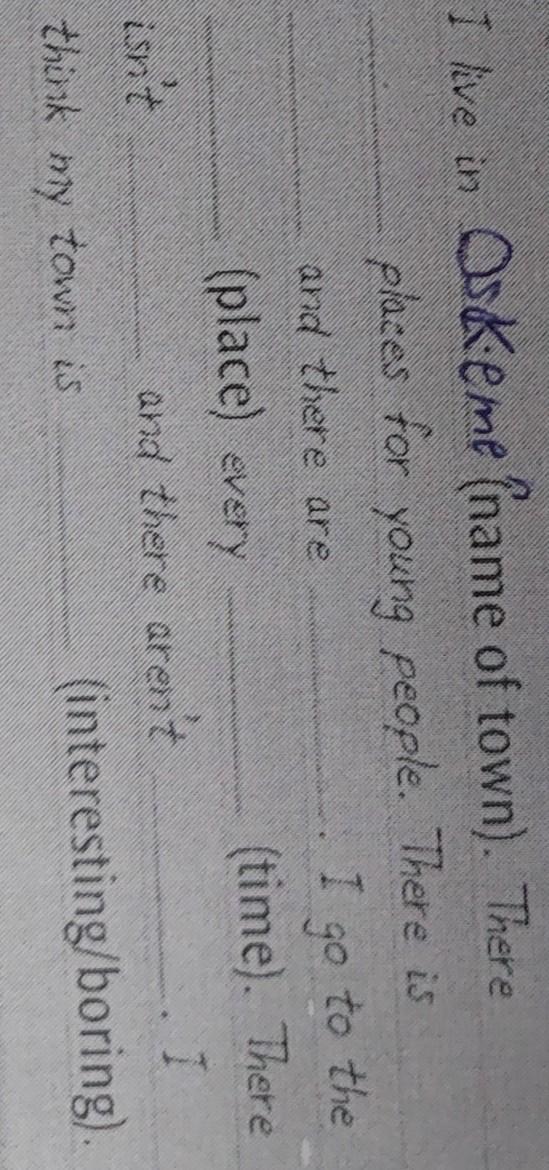 I live in Oskemen (name of town). There
places for young people. There is
and there are . I go to the
(place) every (time). There
isn't and there aren't . I
think my town is (interesting/boring).